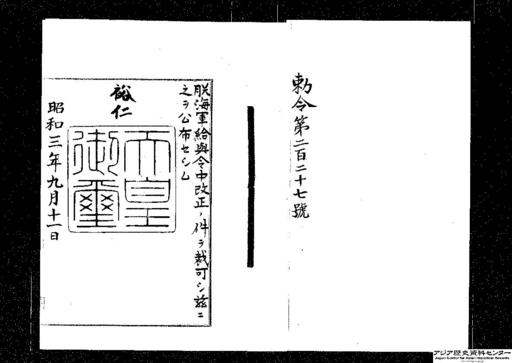 勅令第二百二十七號
朕海軍給與令中改正ノ件ヲ裁可シ茲ニ
之ヲ公布セシム
裕仁
天皇御璽
昭和三年九月十一日
アジア歴史資料センター
Japan Center for Asian Historical Records